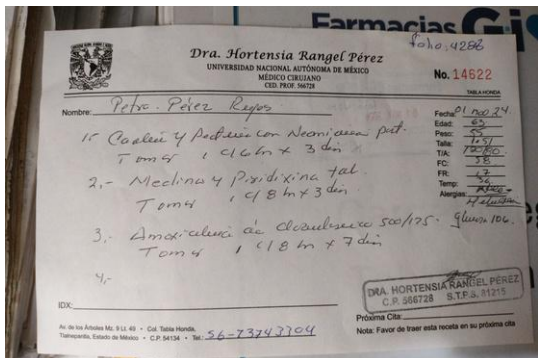 Farmacias Gi
folio. 4286
Dra. Hortensia Rangel Pérez
UNIVERSIDAD NACIONAL AUTÓNOMA DE MÉXICO
MÉDICO CIRUJANO
CED. PROF. 566728
No. 14622
TABLA HONDA
Nombre: Petra Pérez Reyes
Fecha: 01 nov 24
Edad: 63
Peso: 55
Talla: 1.51
T/A:
FC: 58
FR:
Temp: 36
Alergias:
1.- y con Neomicina
Tomar 1 c/6 hr x 3 días
2.- Meclina y Piridoxina tab.
Tomar 1 c/8 hr x 3 días
3.- Amoxicilina ác clavulánico 500/125. glucosa 106.
Tomar 1 c/8 hr x 7 días
4,-
IDX:
DRA. HORTENSIA RANGEL PÉREZ
C.P. 566728 S.T.P.S. 81215
Próxima Cita:
Av. de los Árboles Mz. 9 Lt. 49 • Col. Tabla Honda,
Tlalnepantla, Estado de México • C.P. 54134 • Tel.: 56-73743704
Nota: Favor de traer esta receta en su próxima cita